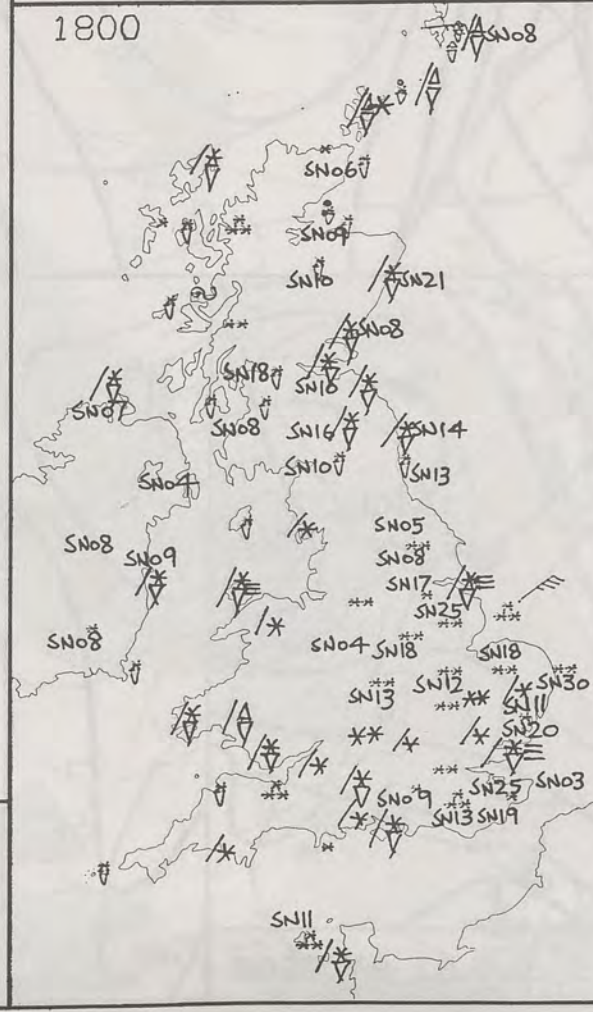 1800
SN08
SN06
SN09
SN10
SN21
SN08
SN18
SN10
SN07
SN08
SN16
SN14
SN10
SN13
SN04
SN05
SN08
SN08
SN09
SN17
SN25
SN08
SN04
SN18
SN18
SN30
SN13
SN12
SN11
SN20
SN25
SN03
SN09
SN13
SN19
SN11